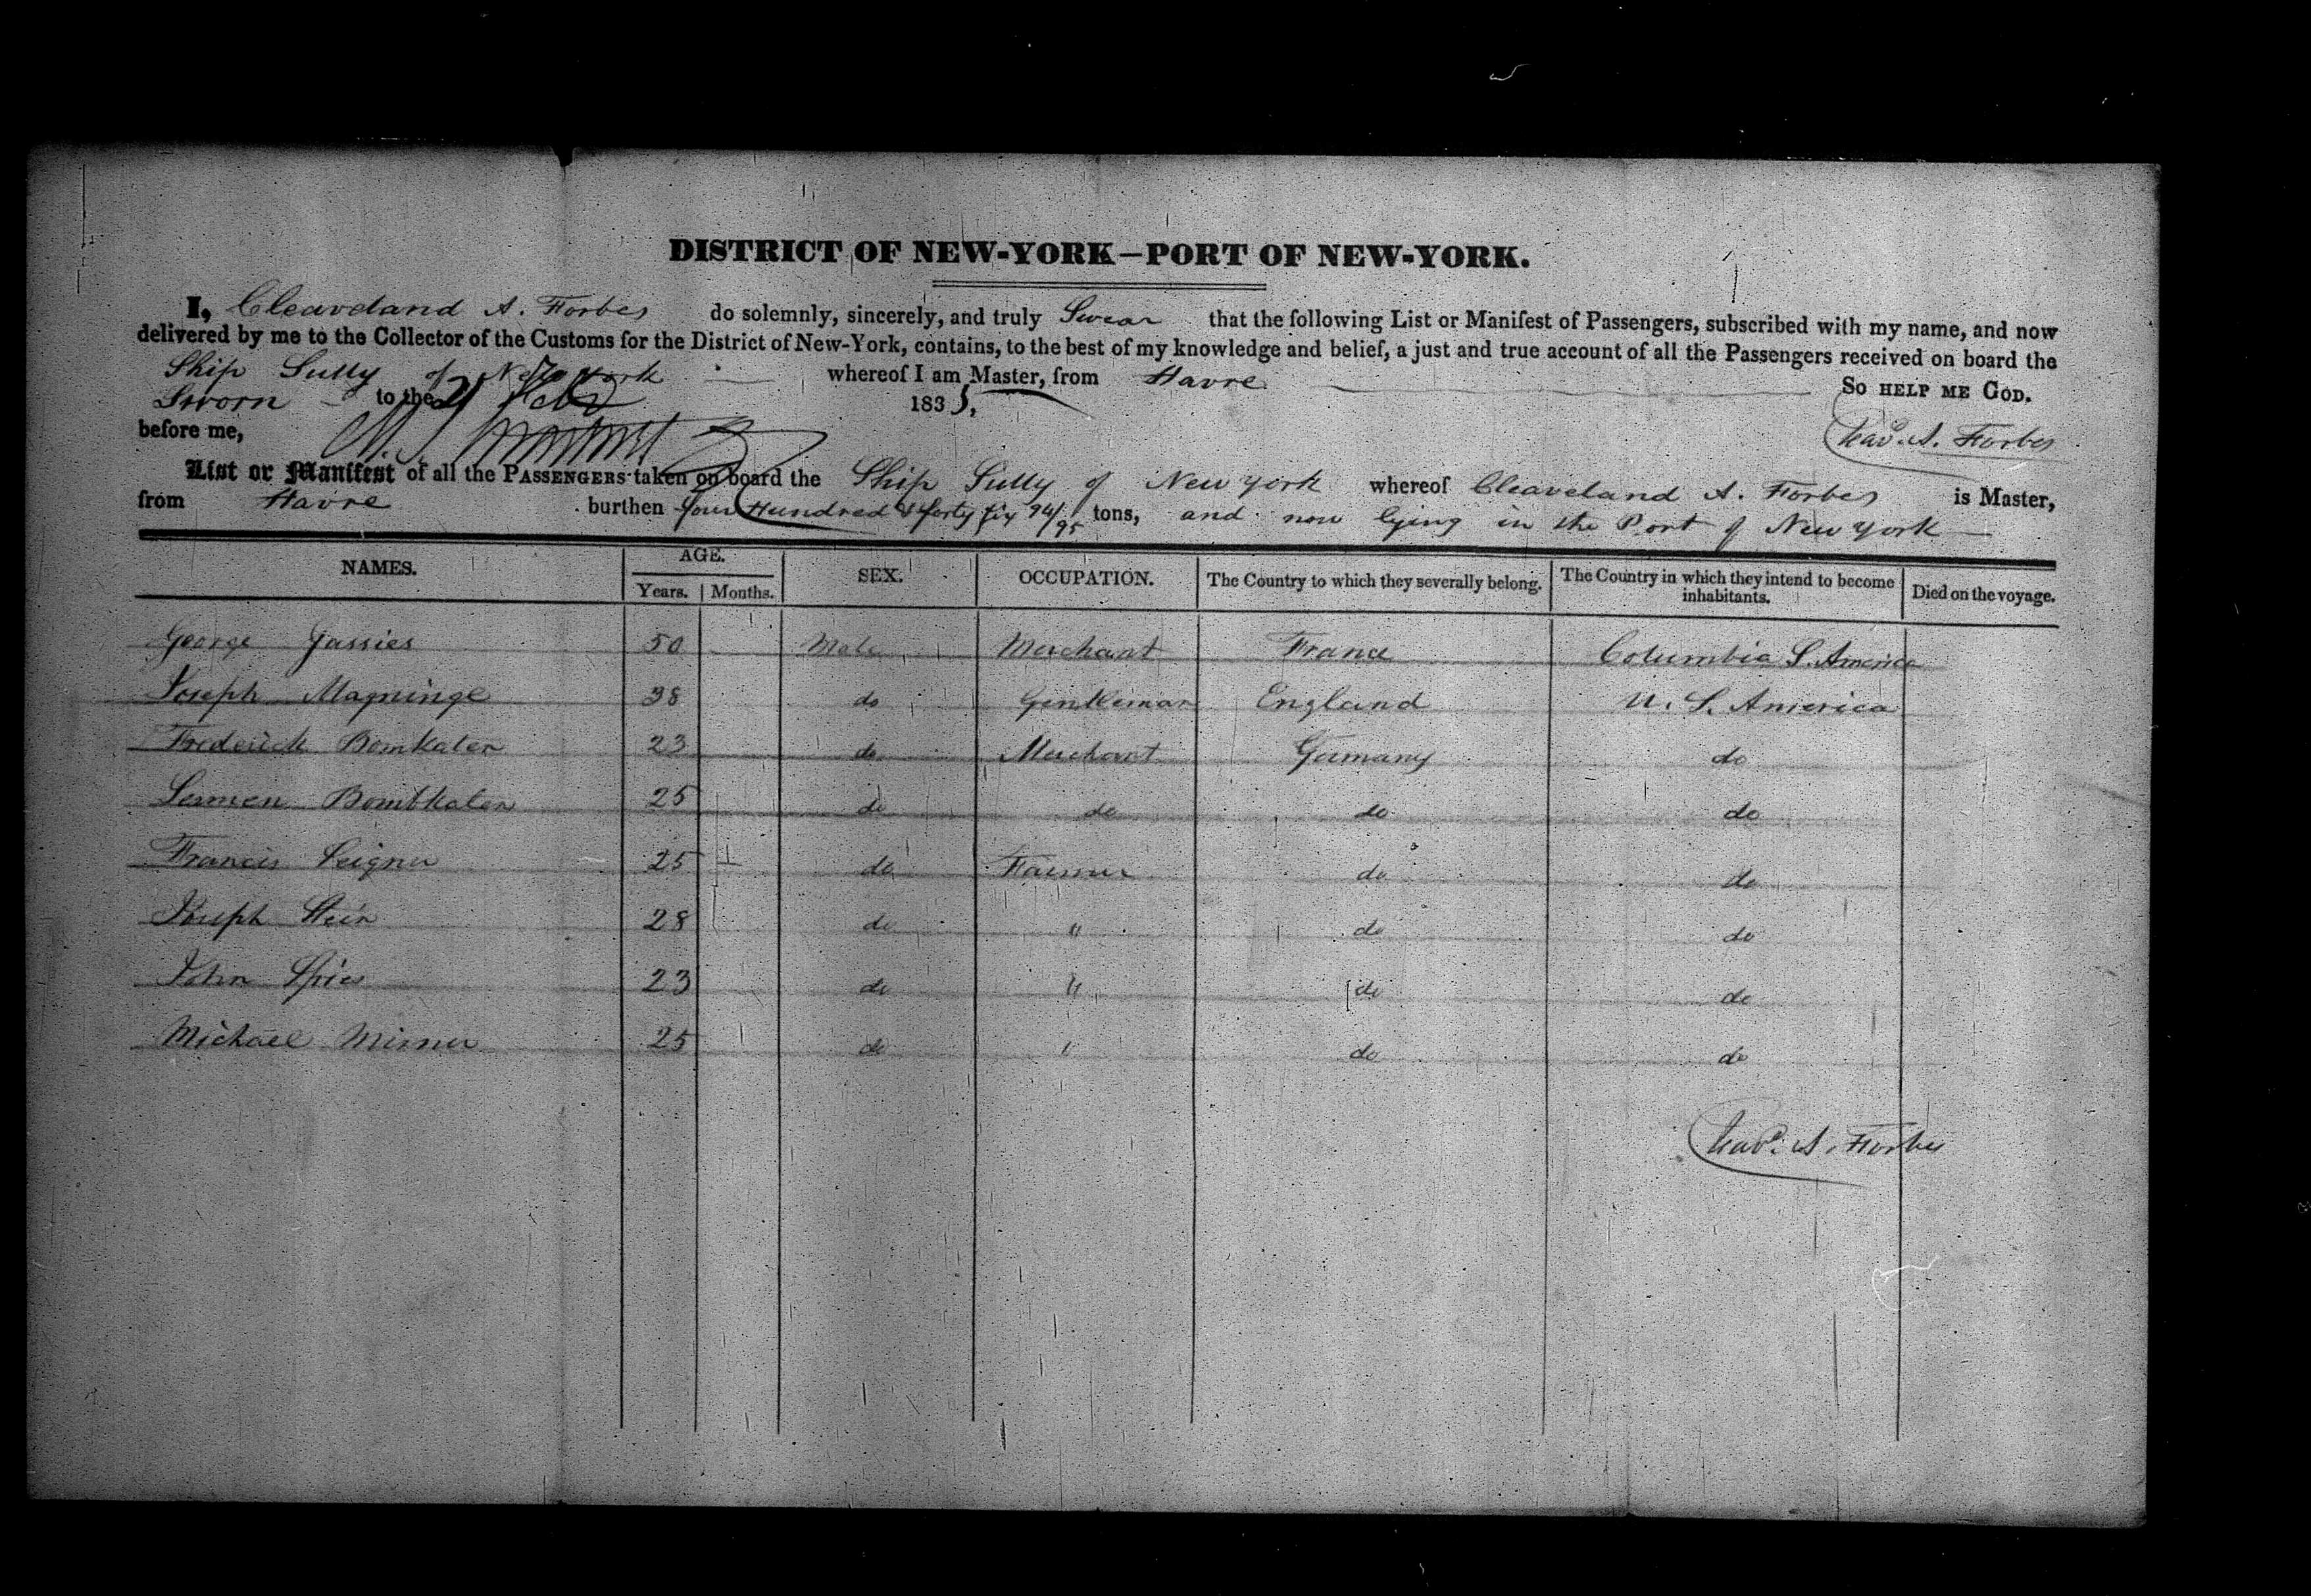 DISTRICT OF NEW-YORK—PORT OF NEW-YORK.
I, Cleaveland A. Forbes do solemnly, sincerely, and truly Swear that the following List or Manifest of Passengers, subscribed with my name, and now
delivered by me to the Collector of the Customs for the District of New-York, contains, to the best of my knowledge and belief, a just and true account of all the Passengers received on board the
Ship Sully of New York whereof I am Master, from Havre
Sworn to the 21 Feb 1835, So HELP ME GOD.
before me, Cleavd. A. Forbes
List or Manifest of all the PASSENGERS taken on board the Ship Sully of New York whereof Cleaveland A. Forbes is Master,
from Havre burthen four Hundred & forty six 94/95 tons, and now lying in the Port of New York
NAMES. AGE. SEX. OCCUPATION. The Country to which they severally belong. The Country in which they intend to become inhabitants. Died on the voyage.
Years. Months.
George Jassies 50 Male Merchant France Columbia S. America
Joseph 38 do Gentleman England U. S. America
Frederick Bomkaten 23 do Merchant Germany do
Bombkaten 25 do do do do
Francis Seigner 25 do Farmer do do
Joseph Stein 28 do " do do
John Spies 23 do " do do
Michael 25 do " do do
Cleavd. A. Forbes